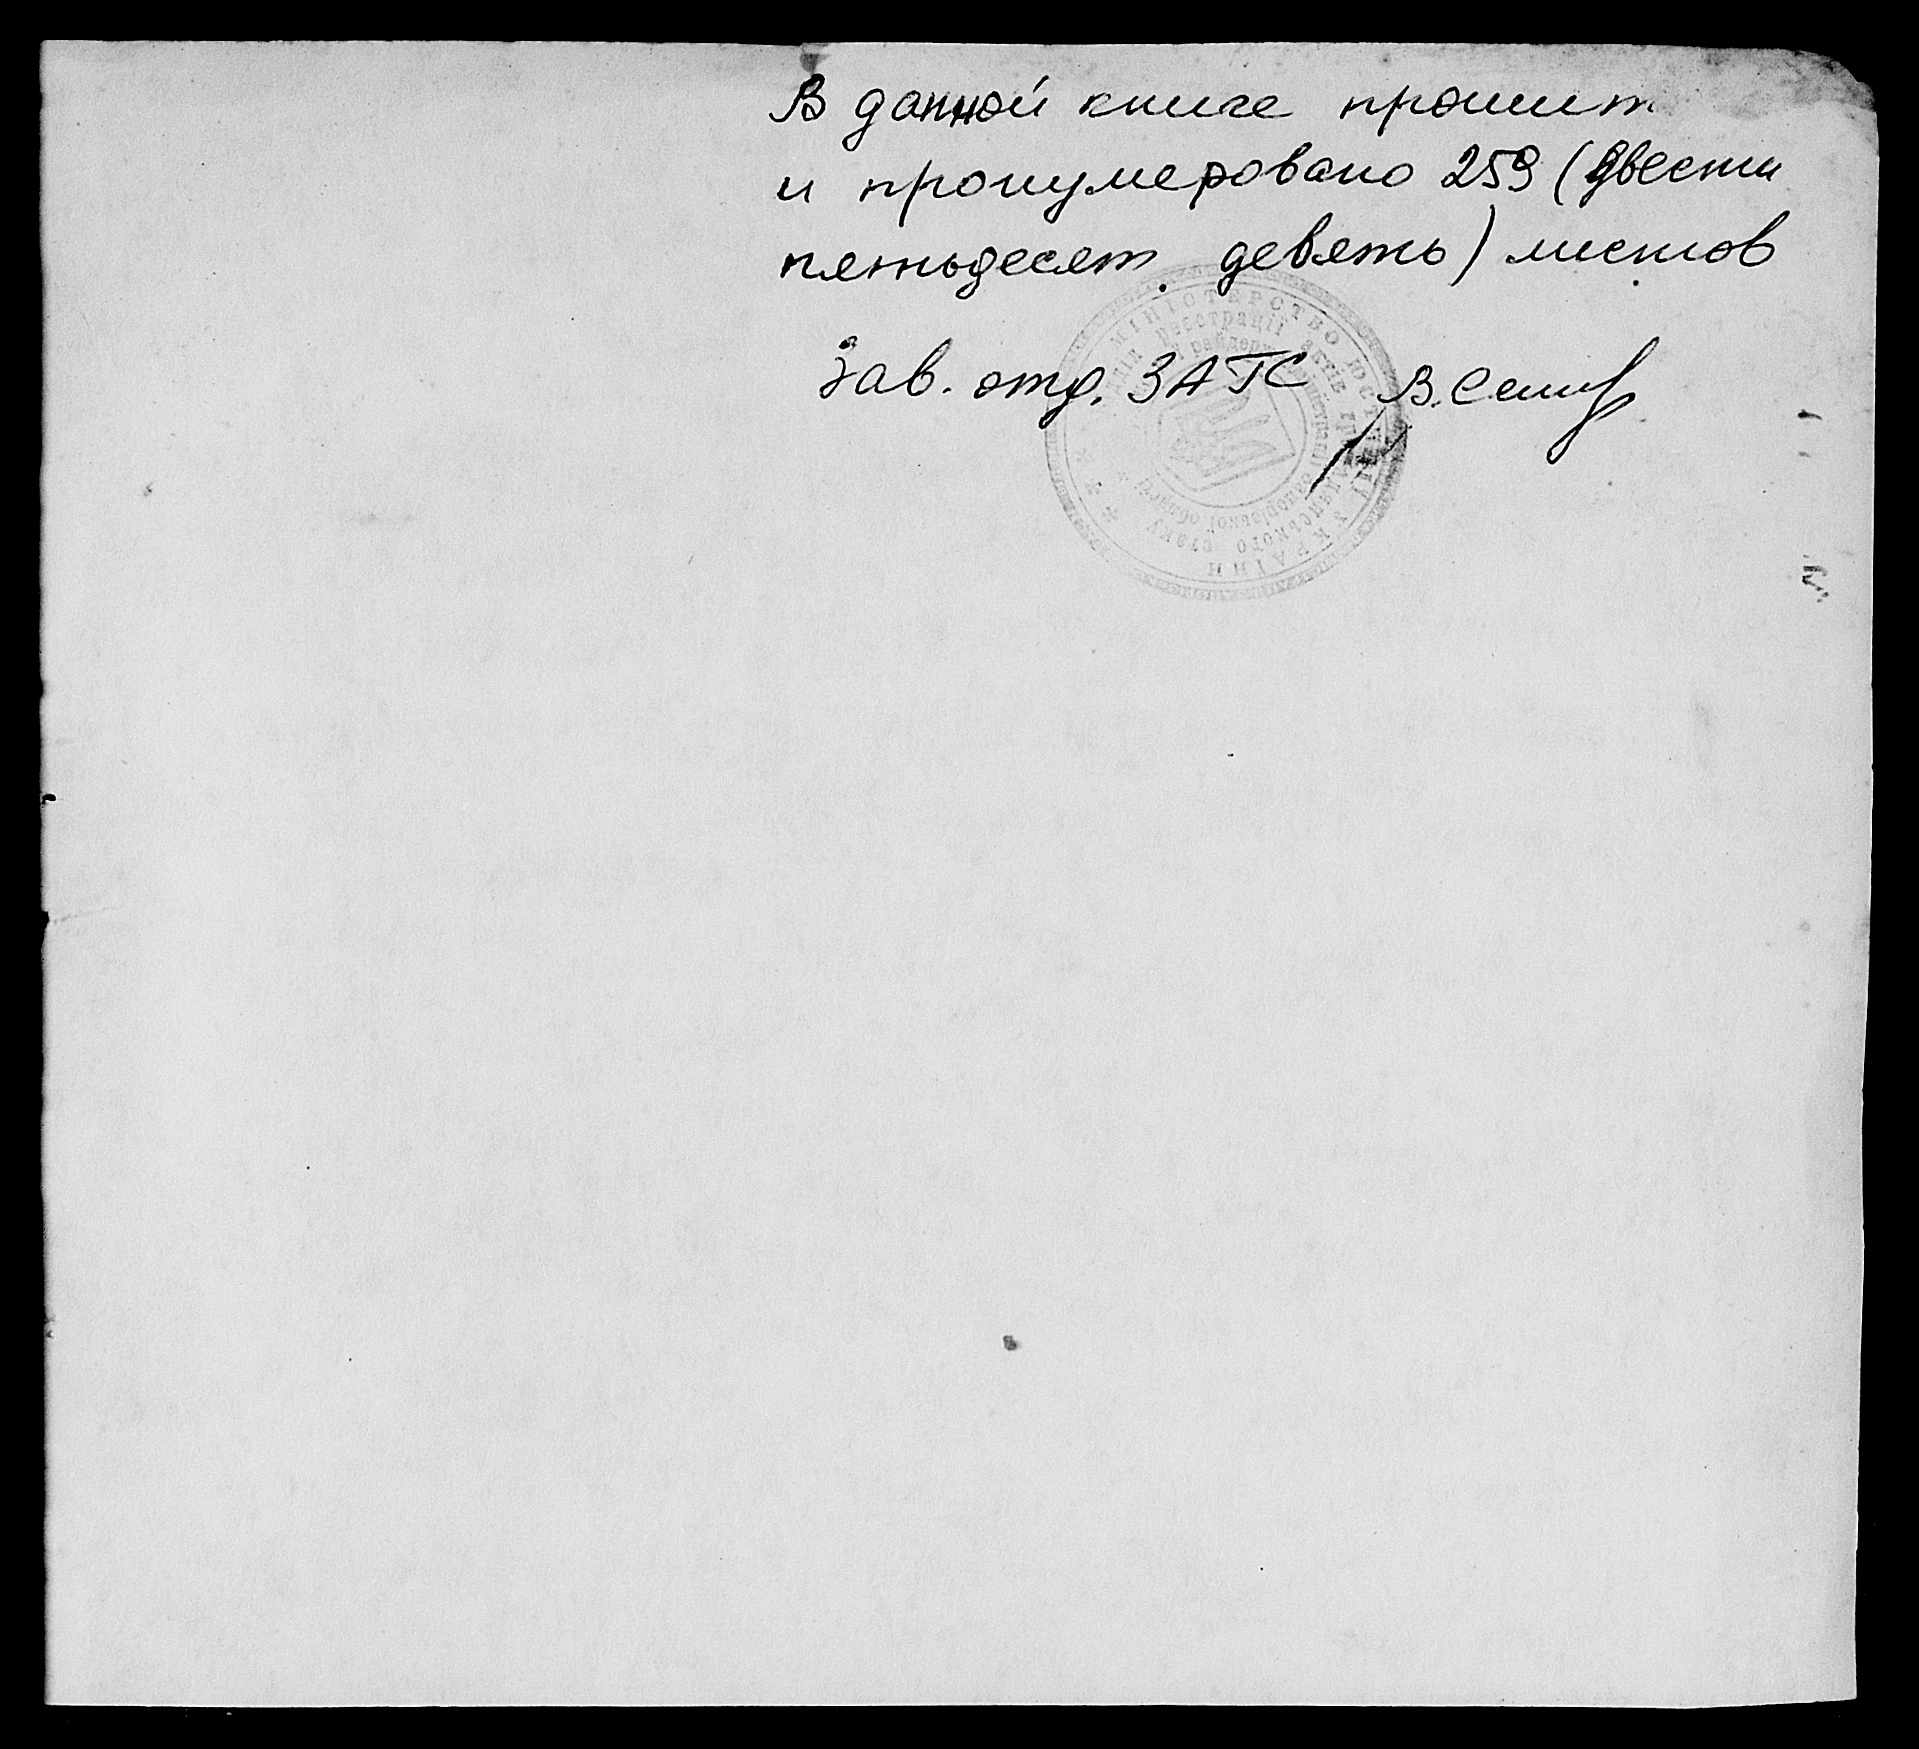 В данной книге прошит
и пронумеровано 259 (двести
пятьдесят девять) листов
Зав. отд. ЗАГС В.
МІНІСТЕРСТВО ЮСТИЦІЇ УКРАЇНИ
реєстрації актів громадянського стану
області